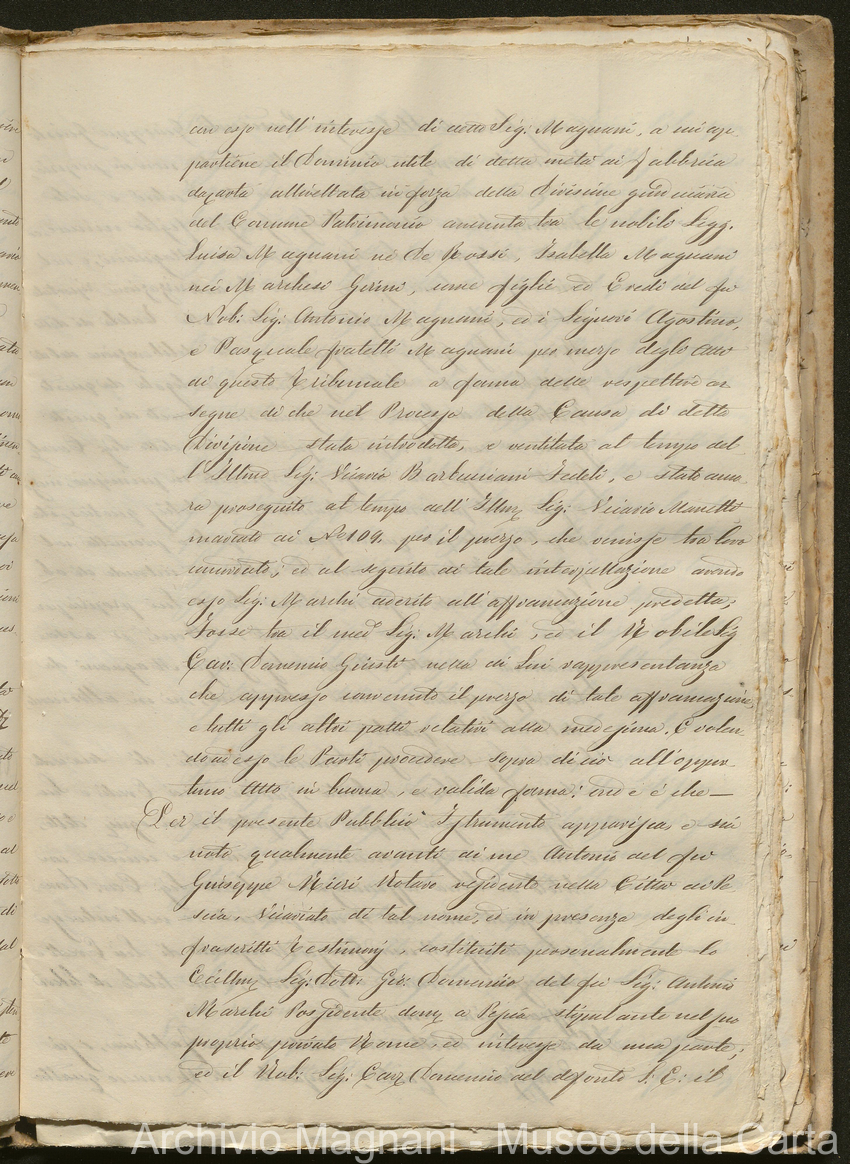 con esso nell'interesse di detto Sig: Magnani, a cui ap-
partiene il Dominio utile di detta metà di Fabbrica
da carta allivellata in forza della Divisione giudiciaria
del Comune Patrimonio avvenuta tra le nobili Sigg.
Luisa Magnani ne' De Rossi, Isabella Magnani
nei Marchesi Gerini, come figlie ed Eredi del fu
Nob: Sig: Antonio Magnani, ed i Signori Agostino,
e Pasquale fratelli Magnani per mezzo degli Atti
di questo Tribunale a forma delle respettive as-
segne di che nel Processo della Causa di detta
Divisione stata introdotta, e ventilata al tempo del
l'Illmo Sig: Vicario Fedeli, e stato anco-
ra proseguito al tempo dell'Illmo Sig: Vicario Manetti
marcato di No 109. per il prezzo, che venisse tra loro
convenuto; ed al seguito di tale interpellazione avendo
esso Sig: Marchi aderito all'affrancazione predetta;
Fosse tra il med Sig: Marchi, ed il Nobile Sig
Cav: Domenico Giusti nella di Lui rappresentanza
che appresso convenuto il prezzo di tale affrancazione,
e tutti gli altri patti relativi alla medesima. E volen-
do adesso le Parti procedere sopra di ciò all'oppor-
tuno Atto in buona, e valida forma; ed è che —
Per il presente Pubblico Istrumento apparisca, e sia
noto qualmente avanti di me Antonio del fu
Giuseppe Nieri Notaro residente nella Città di Pe
scia, Vicariato di tal nome, ed in presenza degli in
frascritti Testimonj, costituiti personalmente lo
Eccllmo Sig: Dott: Gio: Domenico del fu Sig: Antonio
Marchi Possidente domo a Pescia stipulante nel suo
proprio privato Nome, ed interesse da una parte;
ed il Nob: Sig: Cavr Domenico del defonto S: C: il
Archivio Magnani - Museo della Carta